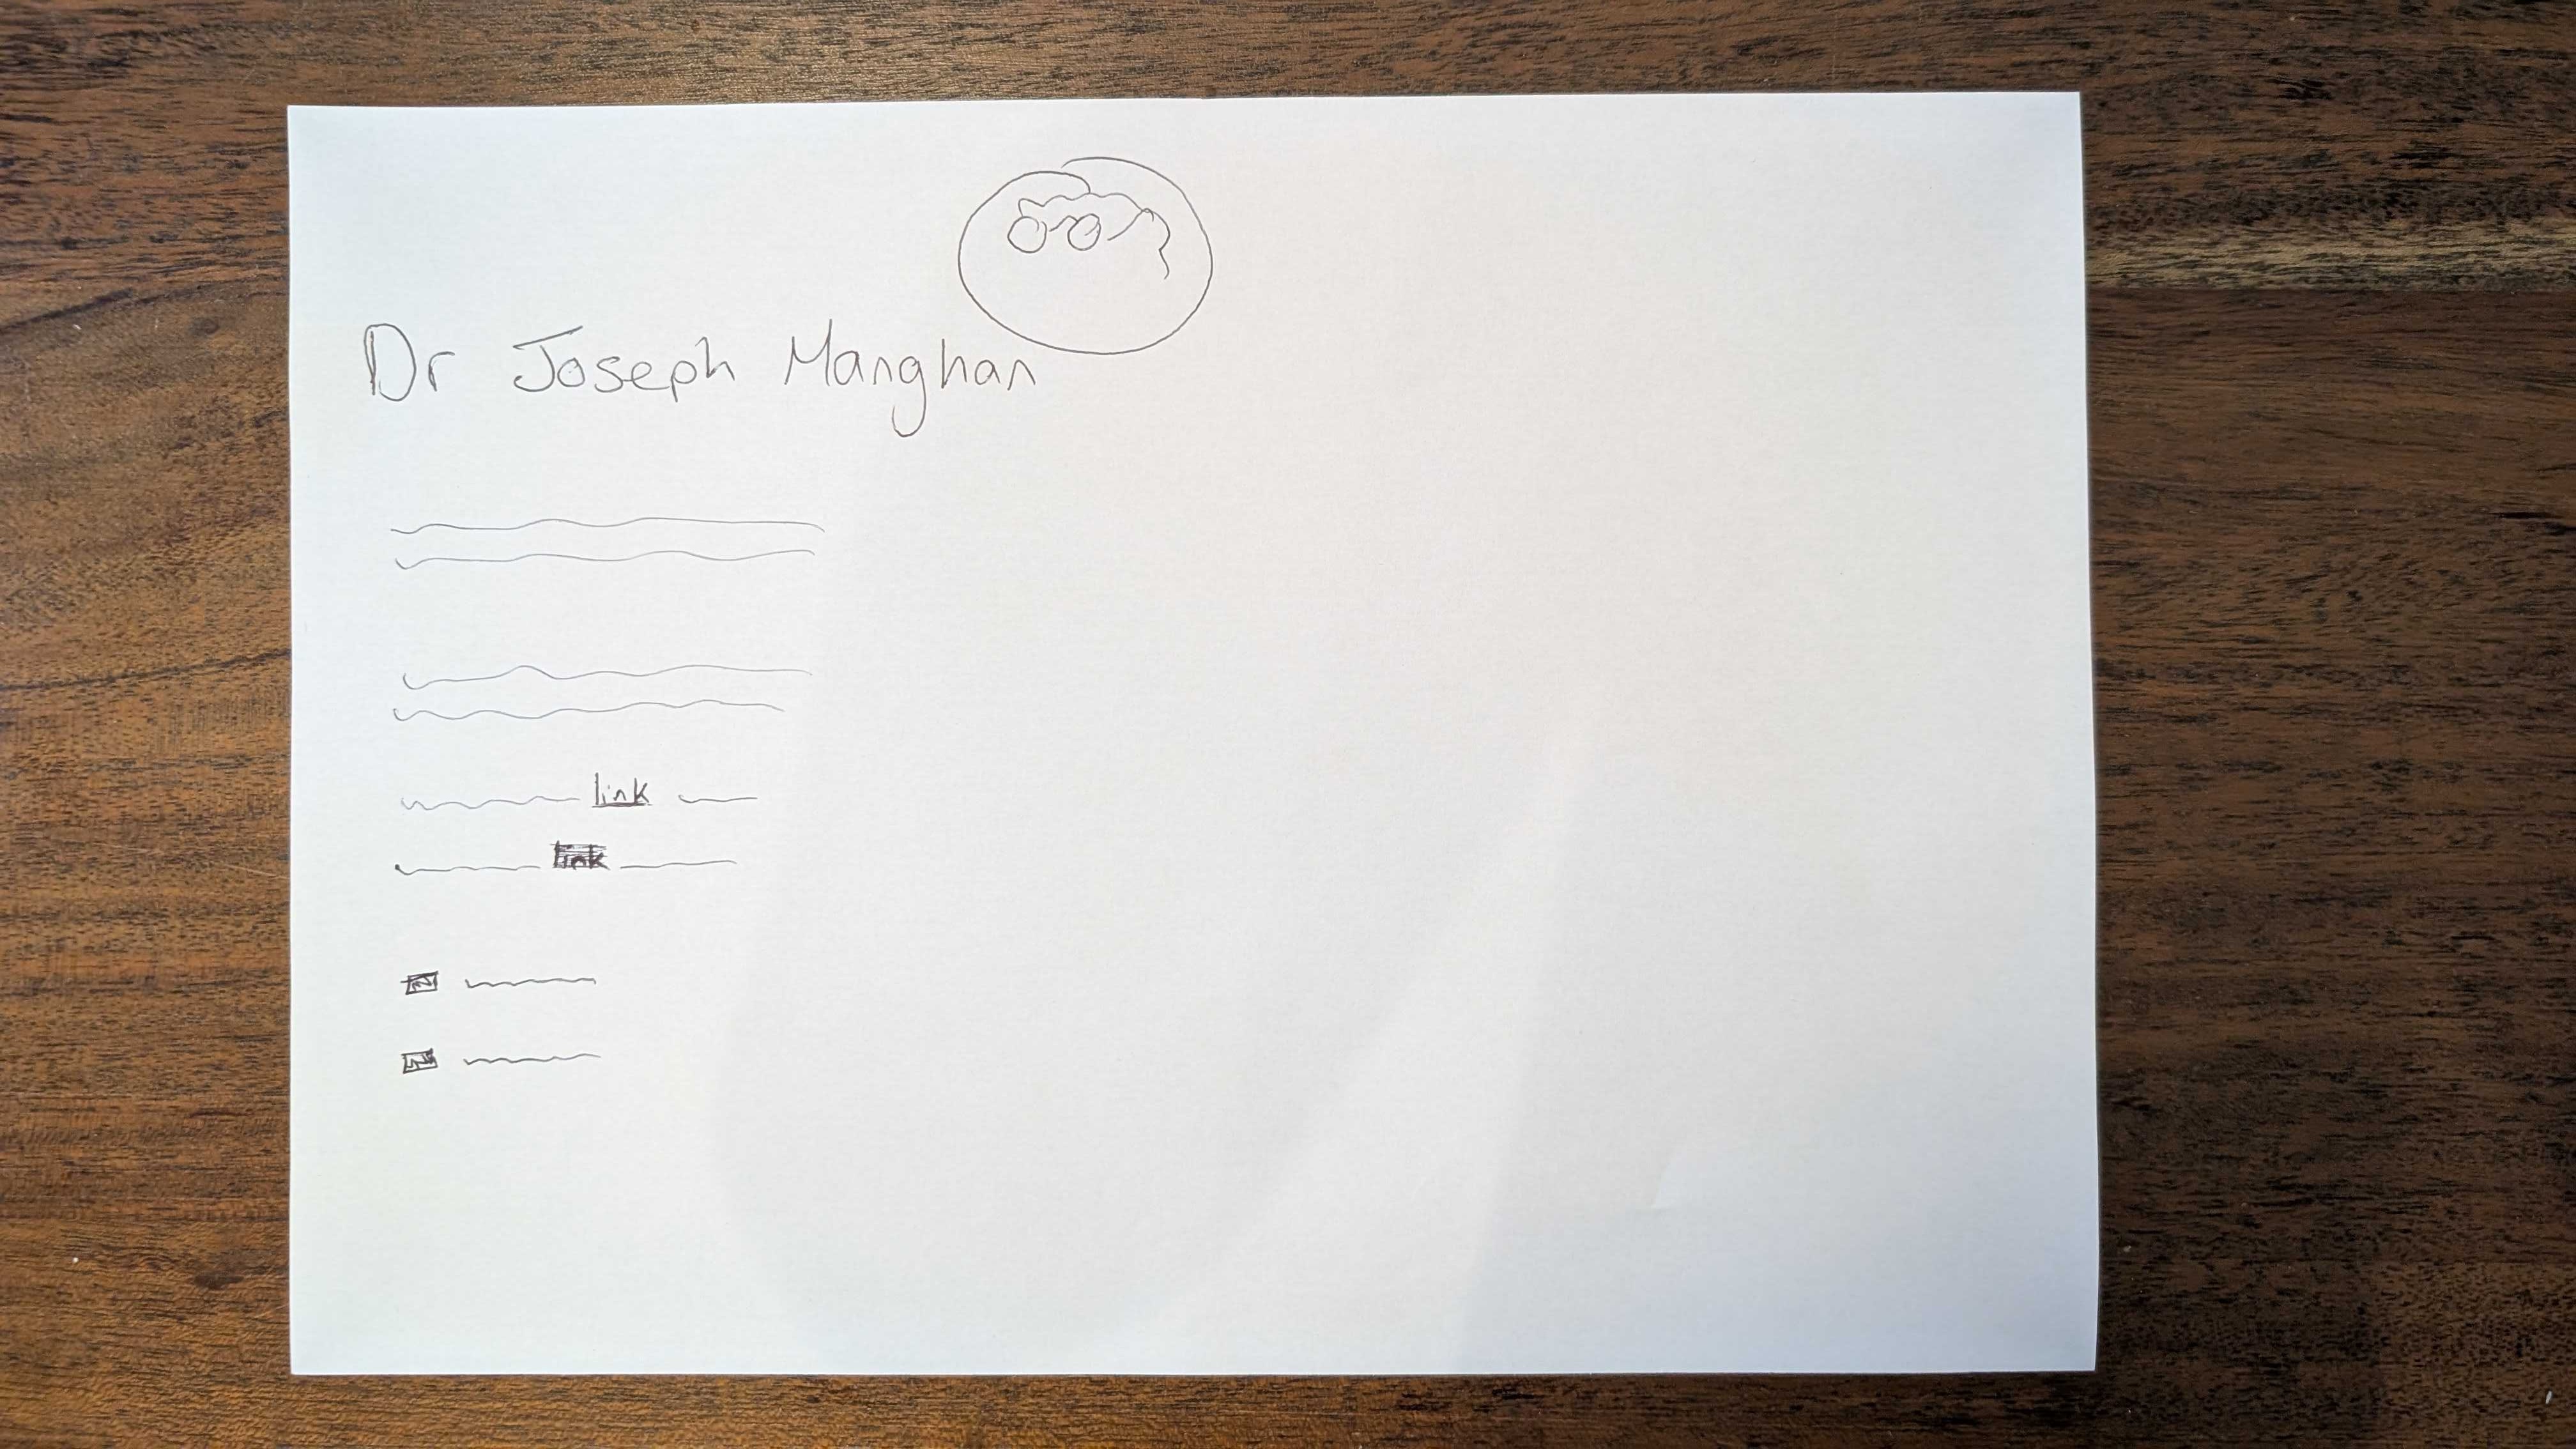 Dr Joseph Manghan
link
link